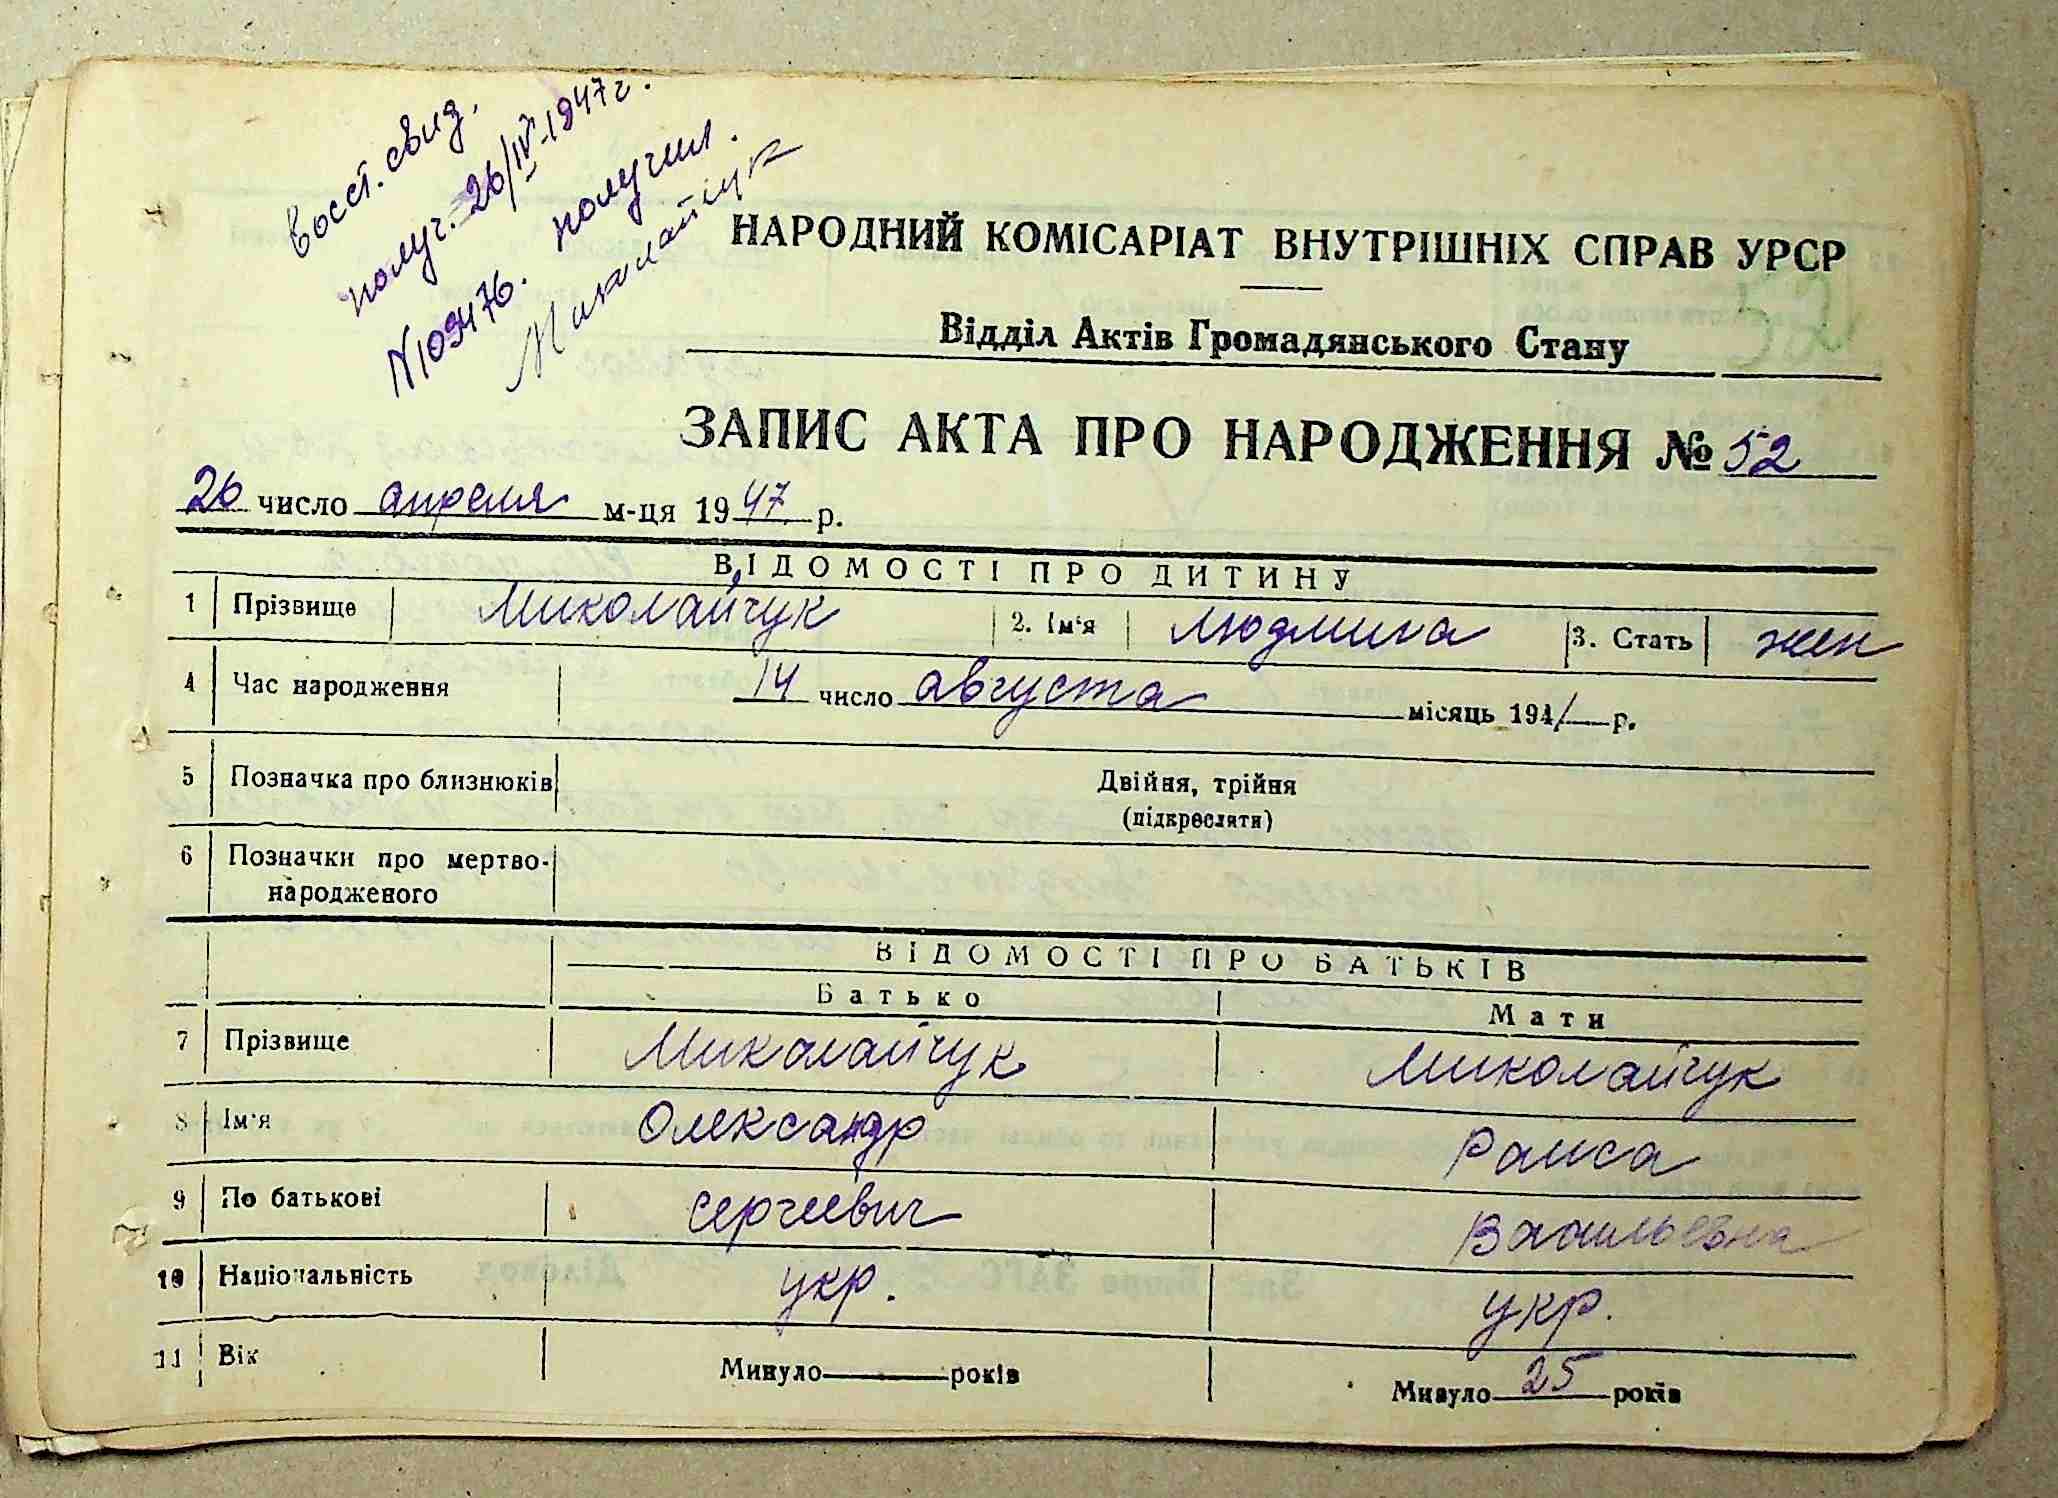 Восст. свид.
получ. 26/IV-1947 г.
N 109476. получил.
Миколайчук
НАРОДНИЙ КОМІСАРІАТ ВНУТРІШНІХ СПРАВ УРСР
52
Відділ Актів Громадянського Стану
ЗАПИС АКТА ПРО НАРОДЖЕННЯ № 52
26 число апреля м-ця 1947 р.
ВІДОМОСТІ ПРО ДИТИНУ
1 Прізвище Миколайчук 2. Ім'я Людмила 3. Стать жен
4 Час народження 14 число августа місяць 1941 р.
5 Позначка про близнюків Двійня, трійня
(підкреслити)
6 Позначки про мертво-
народженого
ВІДОМОСТІ ПРО БАТЬКІВ
Батько Мати
7 Прізвище Миколайчук Миколайчук
8 Ім'я Олександр Раиса
9 По батькові Сергеевич Васильевна
10 Національність укр. укр.
11 Вік Минуло років Минуло 25 років